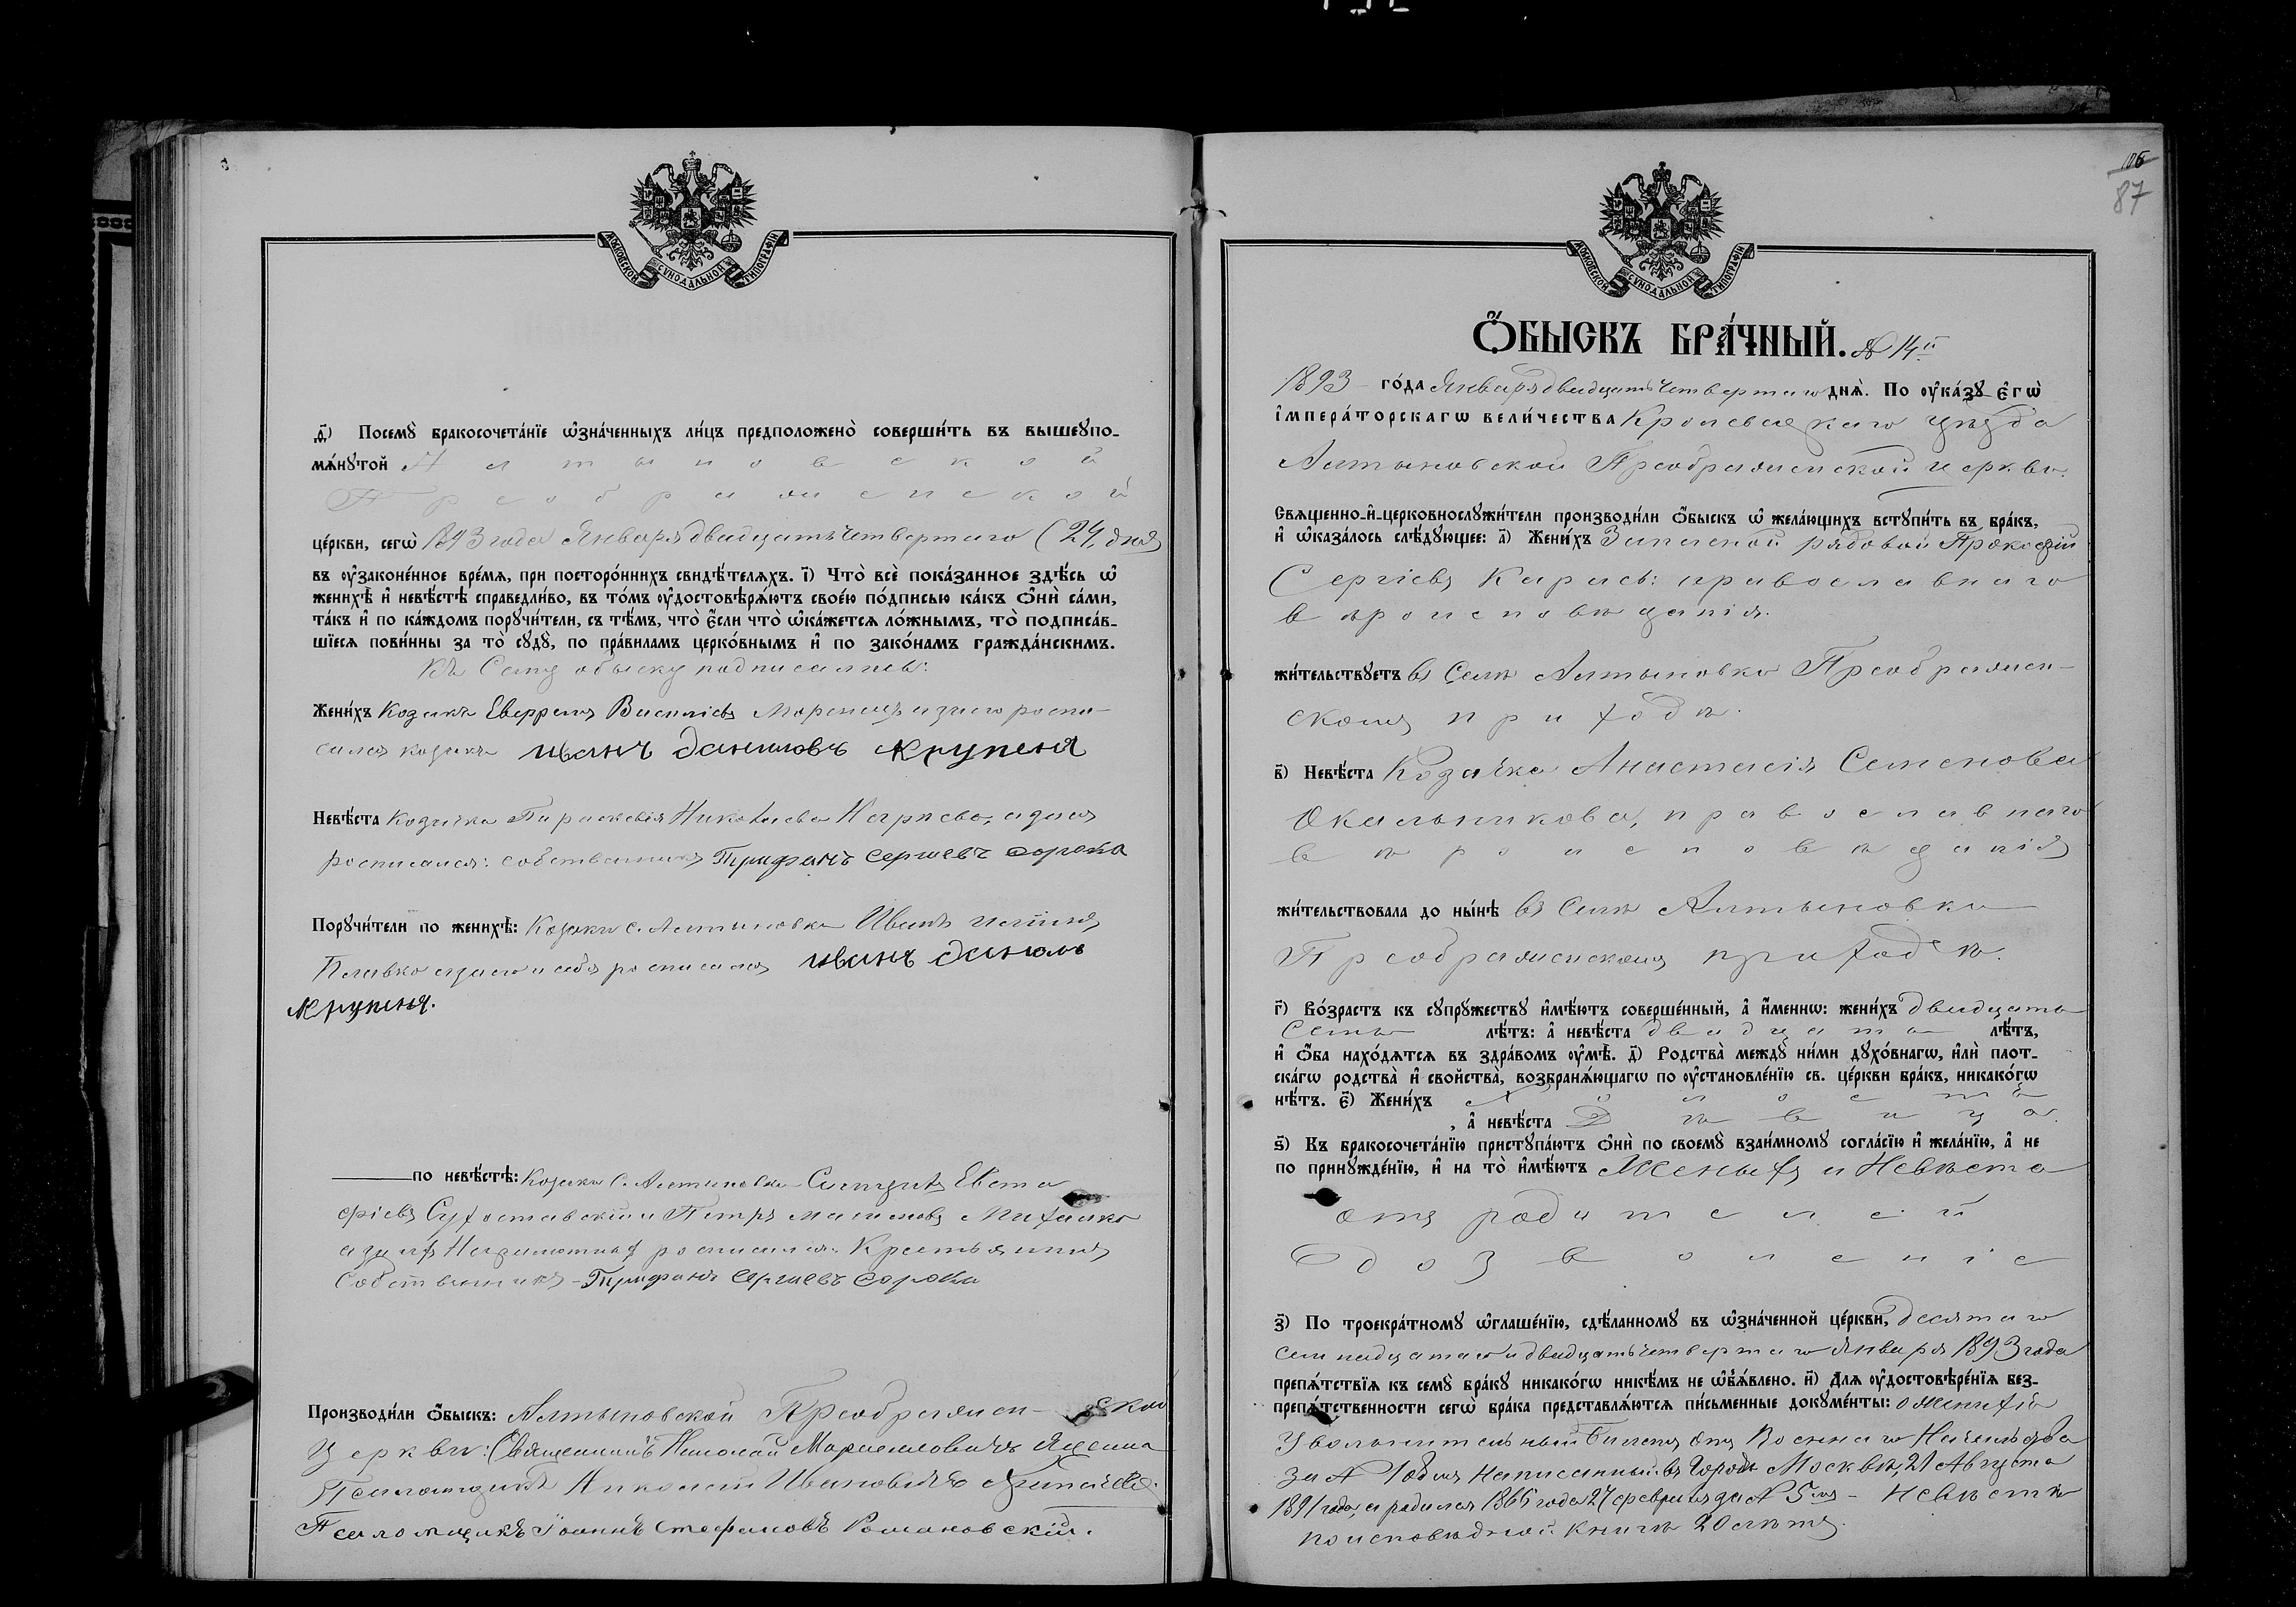 МОСКОВСКОЙ СѴНОДАЛЬНОЙ ТИПОГРАФІИ
д҃і) Посемꙋ̀ бракосочета́нїе ѡ҆зна́ченныхъ ли́цъ предположено̀ соверши́ть въ вышеꙋпо-
мѧ́нꙋтой Алтыновской
Преображенской
це́ркви, сегѡ̀ 1893 года Января двадцать четвертаго (24) дня
въ ᲂу҆законе́нное вре́мѧ, при посторо́ннихъ свидѣ́телѧхъ. і҃) Что̀ всѐ пока́занное здѣ́сь ѡ҆
женихѣ̀ и҆ невѣ́стѣ справедли́во, въ то́мъ ᲂу҆достовѣрѧ́ютъ свое́ю по́дписью ка́къ ѻ҆нѝ са́ми,
та́къ и҆ по ка́ждомъ порꙋчи́тели, съ тѣ́мъ, что̀ є҆́сли что̀ ѡ҆ка́жетсѧ ло́жнымъ, то̀ подписа́в-
шїесѧ пови́нны за то̀ сꙋдꙋ̀, по пра́виламъ церко́внымъ и҆ по зако́намъ гражда́нскимъ.
Къ Сему обыску подписались:
Жени́хъ Козакъ Василіевъ а за него роспи-
сался козакъ иванъ даниловъ крупеня
Невѣ́ста Козачка Параскевія Николаева а за нея
росписался: собственникъ Трифанъ Сергиевъ сорока
Порꙋчи́тели по женихѣ̀: Козаки с. Алтыновки Иванъ
Плавко а за него и себя росписался иванъ данилов
крупеня.
по невѣ́стѣ: Козаки с. Алтыновки Евста
фіевъ и Петръ Михайло
а за ихъ Неграмотныхъ росписался: Крестьянинъ
Собственникъ – Трифанъ Сергиевъ Сорока
Производи́ли ѻ҆́быскъ: Алтыновской Преображен-ской
Церкви: Священникъ Николай
Псаломщикъ Николай Ивановичъ
Псаломщикъ Іоаннъ Стефановъ Романовскій.
106
87
МОСКОВСКОЙ СѴНОДАЛЬНОЙ ТИПОГРАФІИ
Ѻ҆́БЫСКЪ БРА́ЧНЫЙ. № 14й
1893 го́да Января двадцать четвертаго днѧ̀. По ᲂу҆ка́зꙋ Є҆гѡ̀
І҆мпера́торскагѡ вели́чества Кролевецкаго уѣзда
Алтыновской Преображенской церкви
Свѧщенно-и҆-церковнослꙋжи́тели производи́ли ѻ҆́быскъ ѡ҆ жела́ющихъ встꙋпи́ть въ бра́къ,
и҆ ѡ҆каза́лось слѣ́дꙋющее: а҃) Жени́хъ Запасной рядовой Прокофій
Сергіевъ Карась: православнаго
вѣроисповѣданія.
жи́тельствꙋетъ въ Селѣ Алтыновке Преображен-
скомъ приходѣ.
в҃) Невѣ́ста Козачка Анастасія Семенова
Окальникова, православнаго
вѣроисповѣданія
жи́тельствовала до ны́нѣ въ Селѣ Алтыновки
Преображенскомъ приходѣ.
г҃) Во́зрастъ къ сꙋпрꙋ́жествꙋ и҆мѣ́ютъ соверше́нный, а҆ и҆́меннѡ: жени́хъ двадцать
семь лѣ́тъ: а҆ невѣ́ста двадцать лѣ́тъ,
и҆ ѻ҆́ба нахо́дѧтсѧ въ здра́вомъ ᲂу҆мѣ̀. д҃) Родства̀ междꙋ̀ ни́ми дꙋхо́внагѡ, и҆лѝ плот-
ска́гѡ родства̀ и҆ сво́йства, возбранѧ́ющагѡ по ᲂу҆становле́нїю св. це́ркви бра́къ, никако́гѡ
нѣ́тъ. є҃) Жени́хъ холостъ
, а҆ невѣ́ста Дѣвица
ѕ҃) Къ бракосочета́нїю пристꙋпа́ютъ ѻ҆нѝ по своемꙋ̀ взаи́мномꙋ согла́сїю и҆ жела́нїю, а҆ не
по принꙋжде́нїю, и҆ на то̀ и҆мѣ́ютъ Женыхъ и Невѣста
отъ родителей
дозволеніе
з҃) По троекра́тномꙋ ѡ҆глаше́нїю, сдѣ́ланномꙋ въ ѡ҆зна́ченной це́ркви, десятаго
семнадцатаго и двадцать четвертаго января 1893 года
препѧ́тствїѧ къ семꙋ̀ бра́кꙋ никако́гѡ никѣ́мъ не ѡ҆б̾ѧ́влено. и҃) Длѧ ᲂу҆достовѣре́нїѧ без-
препѧ́тственности сегѡ̀ бра́ка представлѧ́ютсѧ пи́сьменные докꙋме́нты: о женихѣ
Увольнительный билетъ отъ Воен­наго Начальства
за № написанный въ Городѣ Москвѣ, 21 Августа
1891 года, а родился 1865 года 27 февраля за № 5мъ – Невѣстѣ
по исповѣдной книгѣ 20 лѣтъ.